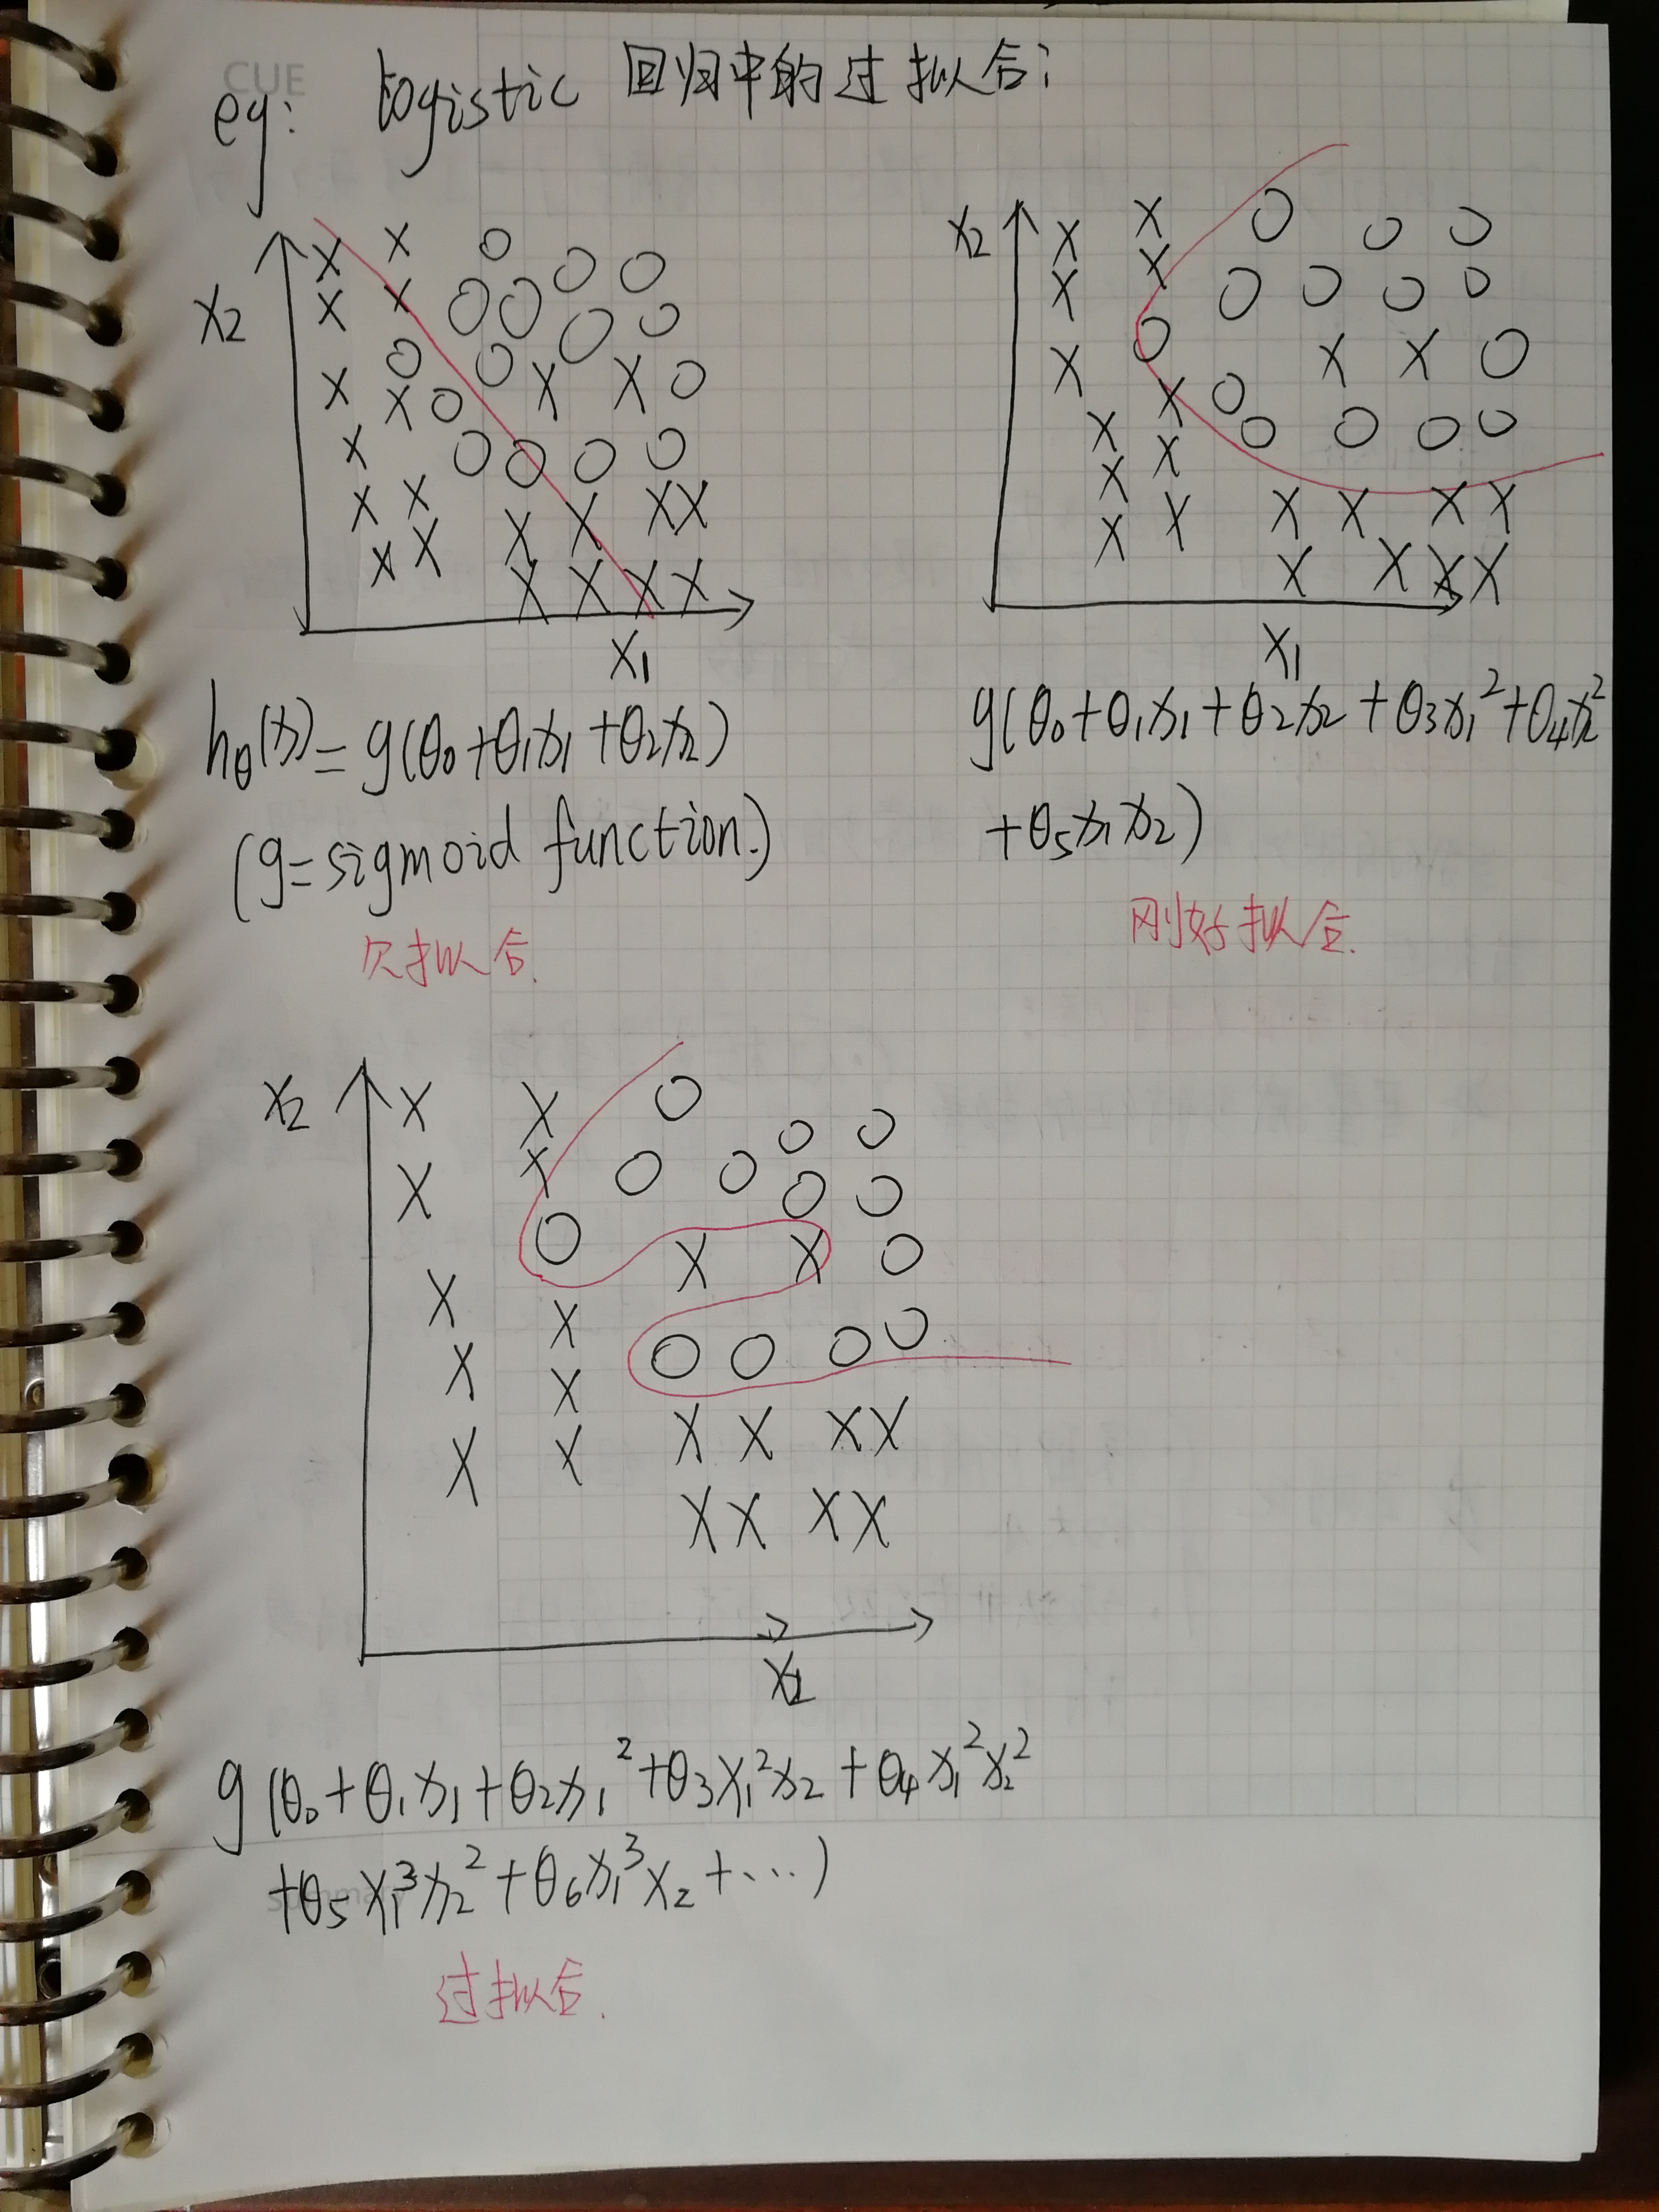 CUE
eg: logistic 回归中的过拟合:
x2
x1
hθ(x)=g(θ0+θ1x1+θ2x2)
(g=sigmoid function.)
欠拟合.
x2
x1
g(θ0+θ1x1+θ2x2+θ3x1²+θ4x2²
+θ5x1x2)
刚好拟合.
x2
x1
g(θ0+θ1x1+θ2x1²+θ3x1²x2+θ4x1²x2²
+θ5x1³x2²+θ6x1³x2+...)
过拟合.